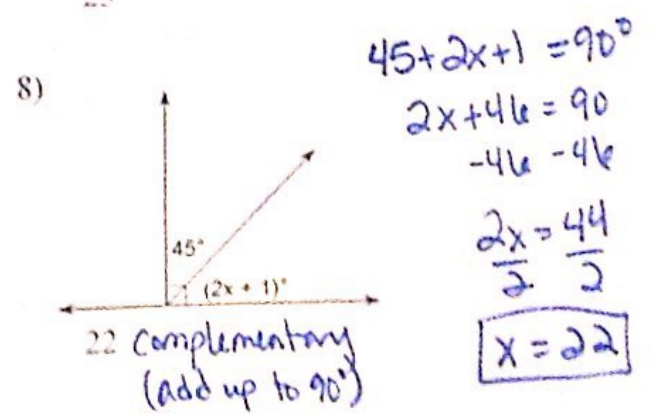 8)
45°
(2x + 1)°
22 complementary
(add up to 90°)
45+2x+1 = 90°
2x+46 = 90
-46 -46
2x = 44
2 2
x = 22